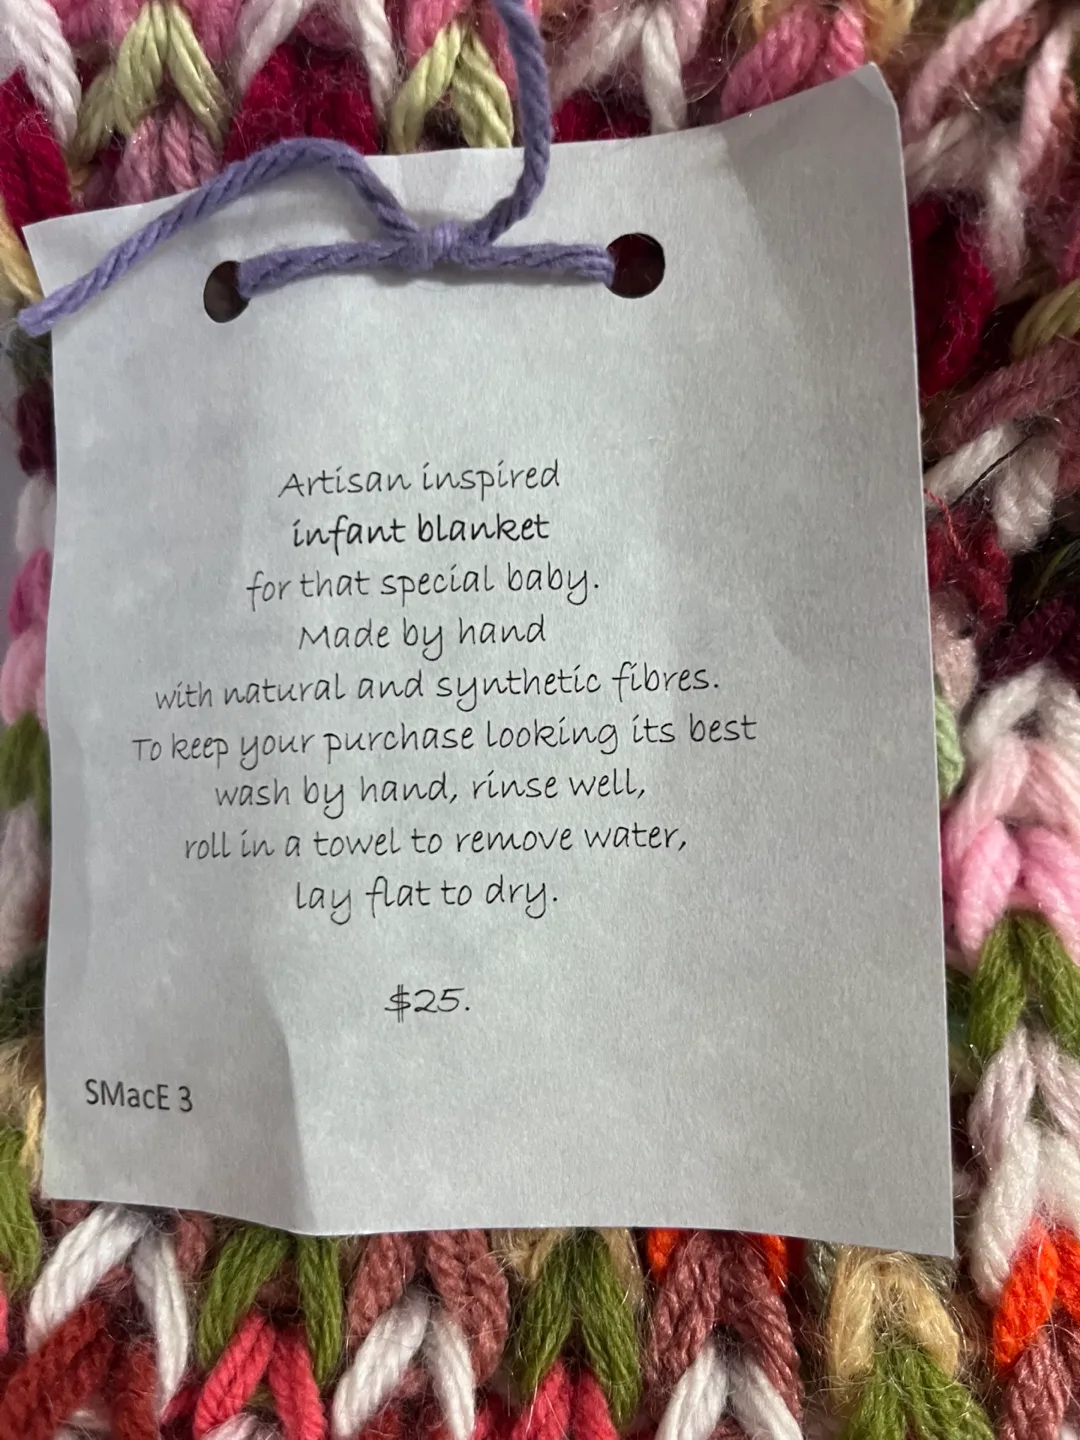 Artisan inspired
infant blanket
for that special baby.
Made by hand
with natural and synthetic fibres.
To keep your purchase looking its best
wash by hand, rinse well,
roll in a towel to remove water,
lay flat to dry.
$25.
SMacE 3